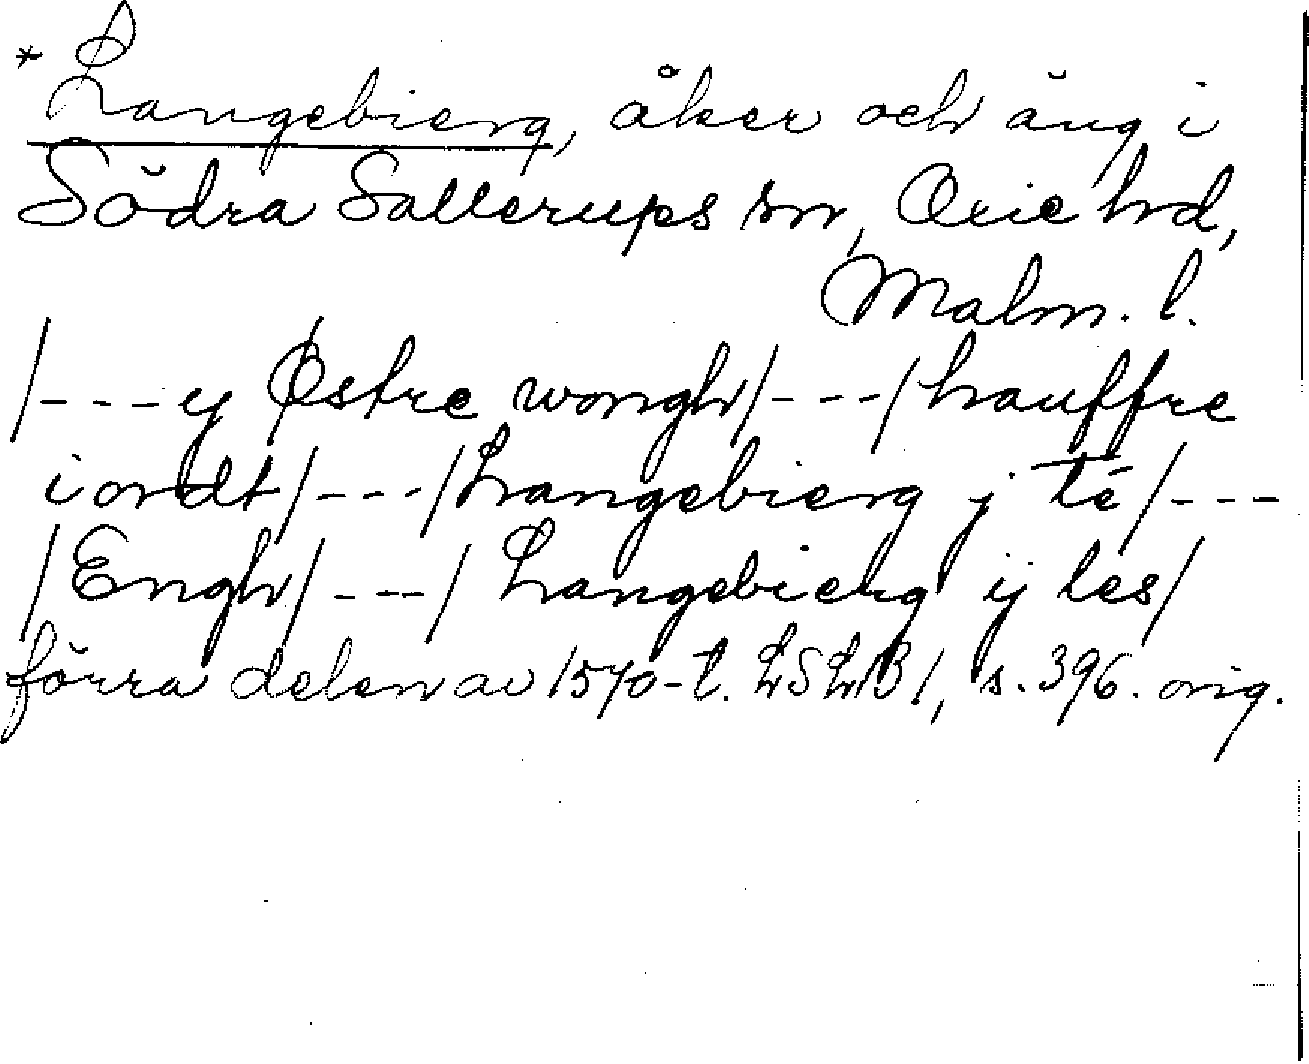 * Langebierg, åker och äng i
Södra Sallerups sn, Oxie hd,
Malm. l.
/---y Østre wongh/---/hauffre
iordt/---/Langebierg j té/---
/Engh/---/Langebierg ij les/
förra delen av 1570-t. LSLB1, s. 396. orig.